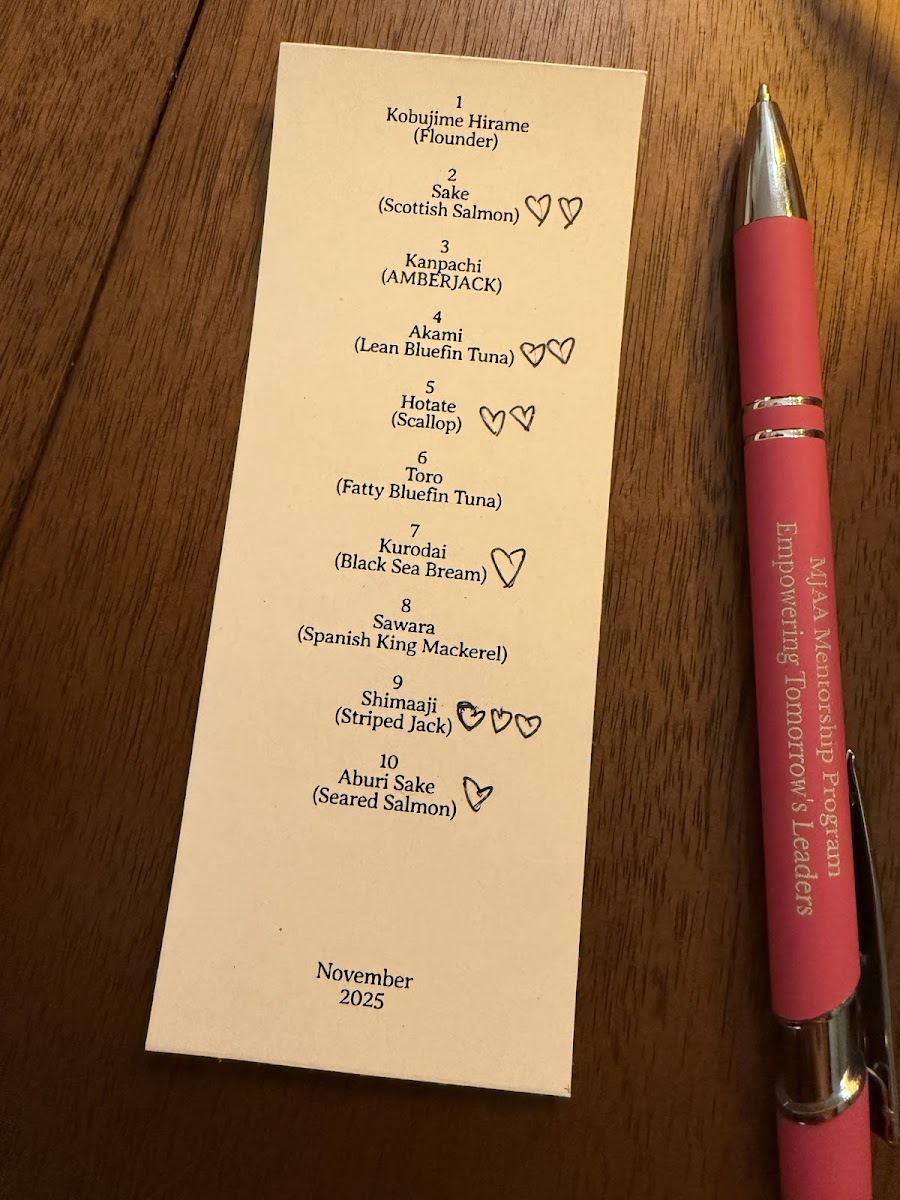 1
Kobujime Hirame
(Flounder)
2
Sake
(Scottish Salmon)
3
Kanpachi
(AMBERJACK)
4
Akami
(Lean Bluefin Tuna)
5
Hotate
(Scallop)
6
Toro
(Fatty Bluefin Tuna)
7
Kurodai
(Black Sea Bream)
8
Sawara
(Spanish King Mackerel)
9
Shimaaji
(Striped Jack)
10
Aburi Sake
(Seared Salmon)
November
2025
MJAA Mentorship Program
Empowering Tomorrow's Leaders